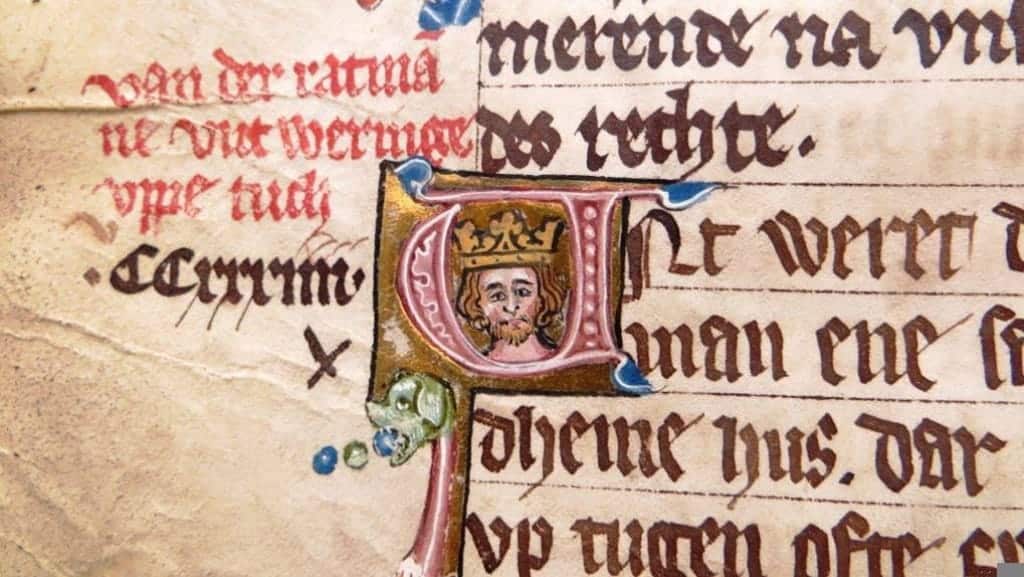 van der ratmā
ne vntweringe
vppe tuch
.CCxxxiiii.
x
merende na
des rechte.
UNt weret
man ene
dheme hus. dar
vp tugen ofte